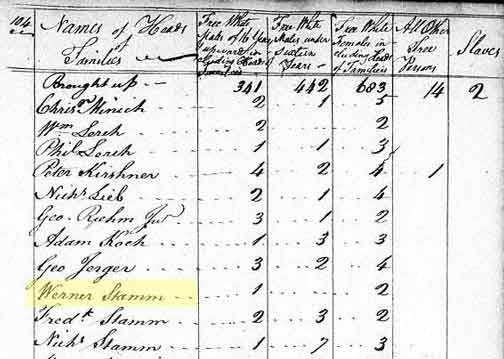 104
Names of Heads of Families | Free White Males of 16 Years upward including Heads of Families | Free White Males under Sixteen Years | Free White Females including Heads of Families | All Other Free Persons | Slaves
Brought up 341 442 683 14 2
Chrisr Minich 2 1 5
Wm Lerch 2 2
Phil Lerch 1 1 3
Peter Kirshner 4 2 4 1
Nichs Lieb 2 1 4
Geo Riehm Jur 3 1 2
Adam Koch 1 3 3
Geo Jerger 3 2 4
Werner Stamm 1 2
Fredk Stamm 2 3 2
Nichs Stamm 1 7 3